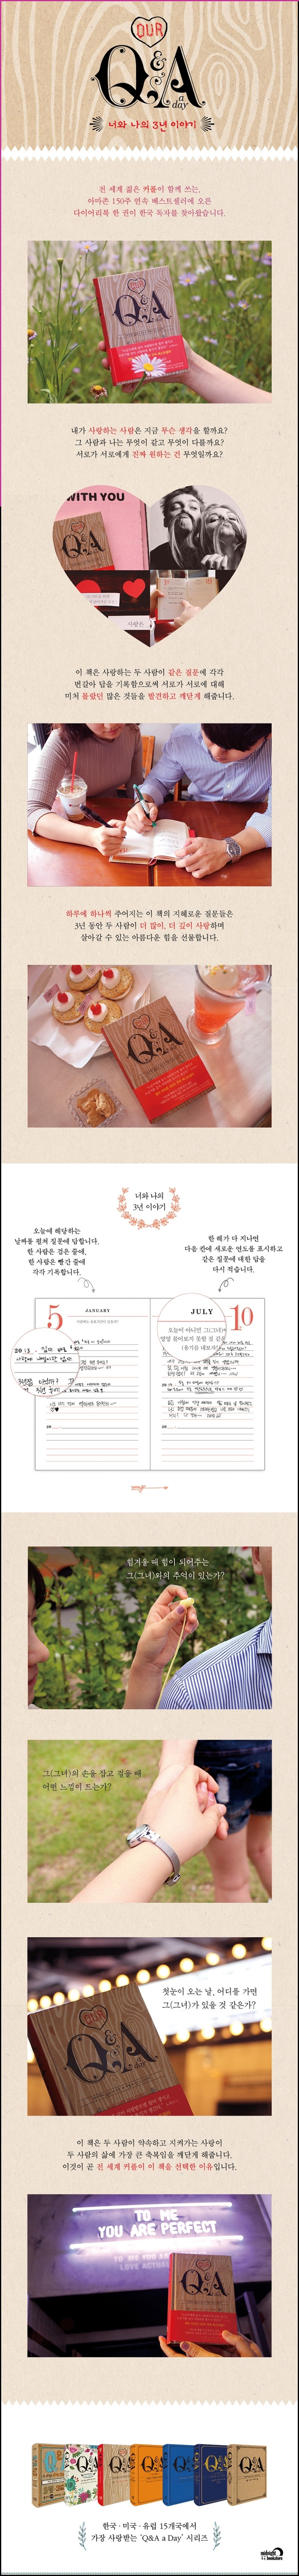 OUR
Q&A
a day
너와 나의 3년 이야기
전 세계 젊은 커플이 함께 쓰는,
아마존 150주 연속 베스트셀러에 오른
다이어리북 한 권이 한국 독자를 찾아왔습니다.
OUR
Q&A
내가 사랑하는 사람은 지금 무슨 생각을 할까요?
그 사람과 나는 무엇이 같고 무엇이 다를까요?
서로가 서로에게 진짜 원하는 건 무엇일까요?
WITH YOU
Q&A
사랑은
이 책은 사랑하는 두 사람이 같은 질문에 각각
번갈아 답을 기록함으로써 서로가 서로에 대해
미처 몰랐던 많은 것들을 발견하고 깨닫게 해줍니다.
하루에 하나씩 주어지는 이 책의 지혜로운 질문들은
3년 동안 두 사람이 더 많이, 더 깊이 사랑하며
살아갈 수 있는 아름다운 힘을 선물합니다.
OUR
Q&A
너와 나의
3년 이야기
오늘에 해당하는
날짜를 펼쳐 질문에 답합니다.
한 사람은 검은 줄에,
한 사람은 빨간 줄에
각각 기록합니다.
한 해가 다 지나면
다음 칸에 새로운 연도를 표시하고
같은 질문에 대한 답을
다시 적습니다.
5
JANUARY
JULY
10
힘겨울 때 힘이 되어주는
그(그녀)와의 추억이 있는가?
그(그녀)의 손을 잡고 걸을 때
어떤 느낌이 드는가?
첫눈이 오는 날, 어디를 가면
그(그녀)가 있을 것 같은가?
OUR
Q&A
a day
이 책은 두 사람이 약속하고 지켜가는 사랑이
두 사람의 삶에 가장 큰 축복임을 깨닫게 해줍니다.
이것이 곧 전 세계 커플이 이 책을 선택한 이유입니다.
TO ME
YOU ARE PERFECT
LOVE ACTUALLY
Q&A
Q&A
한국 · 미국 · 유럽 15개국에서
가장 사랑받는 'Q&A a Day' 시리즈
midnight
bookstore